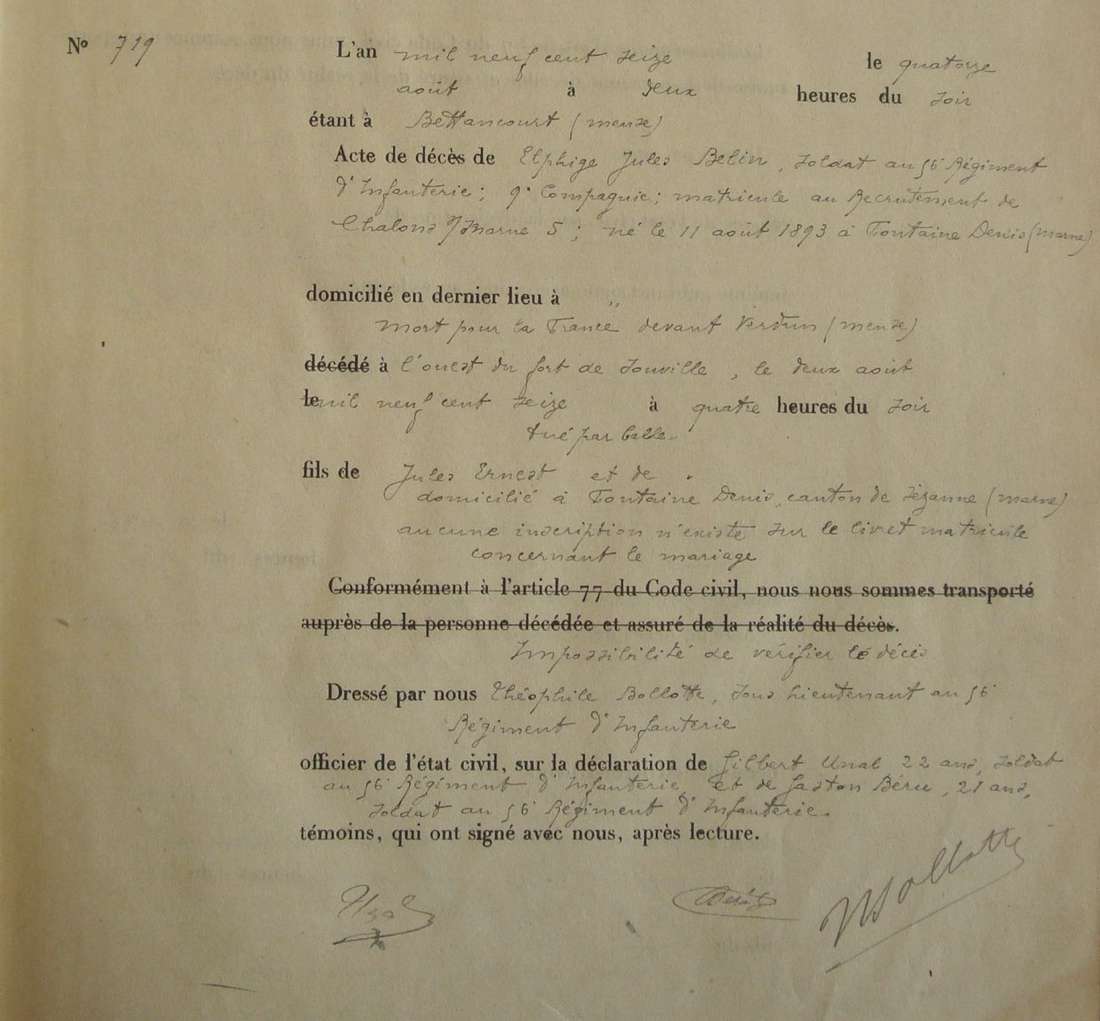 N° 719
L'an mil neuf cent seize le quatorze
août à deux heures du soir
étant à Bettancourt (meuse)
Acte de décès de Elphige Jules Belin, soldat au 56e Régiment
d'Infanterie; 9e Compagnie; matricule au Recrutement de
Chalons s/Marne 5; né le 11 août 1893 à Fontaine Denis (marne)
domicilié en dernier lieu à "
mort pour la France devant Verdun (meuse)
décédé à l'ouest du fort de Souville, le deux août
le mil neuf cent seize à quatre heures du soir
tué par balle.
fils de Jules Ernest et de .
domicilié à Fontaine Denis, canton de Sézanne (marne)
aucune inscription n'existe sur le livret matricule
concernant le mariage
Conformément à l'article 77 du Code civil, nous nous sommes transporté
auprès de la personne décédée et assuré de la réalité du décès.
Impossibilité de vérifier le décès
Dressé par nous Théophile Bollotte, sous Lieutenant au 56e
Régiment d'Infanterie
officier de l'état civil, sur la déclaration de Gilbert 22 ans, soldat
au 56e Régiment d'Infanterie et de Gaston 21 ans,
soldat au 56e Régiment d'Infanterie.
témoins, qui ont signé avec nous, après lecture.
Bollotte